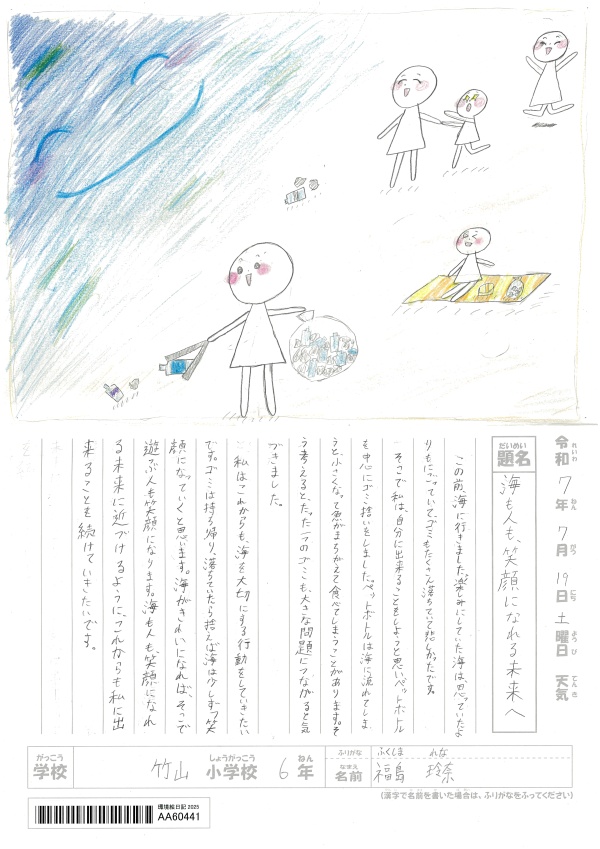 令和 7年 7月 19日 土曜日 天気
れいわ ねん がつ にち ようび てんき
だいめい
題名 海も人も、笑顔になれる未来へ
この前、海に行きました。楽しみにしていた海は、思っていたよ
りもにごっていて、ゴミもたくさん落ちていて悲しかったです。
そこで私は、自分に出来ることをしようと思いペットボトル
を中心にゴミ拾いをしました。ペットボトルは海に流れてしま
うと、小さくなって魚がまちがえて食べてしまうことがあります。そ
う考えると、たった一つのゴミも、大きな問題につながると気
づきました。
私はこれからも、海を大切にする行動をしていきたい
です。ゴミは持ち帰り、落ちていたら拾えば海は少しずつ笑
顔になっていくと思います。海がきれいになれば、そこで
遊ぶ人も笑顔になります。海も人も笑顔になれ
る未来に近づけるように、これからも私に出
来ることを続けていきたいです。
がっこう しょうがっこう ねん
学校 竹山 小学校 6年
ふりがな ふくしま れな
なまえ
名前 福島 玲奈
(漢字で名前を書いた場合は、ふりがなをふってください)
環境絵日記 2025
AA60441